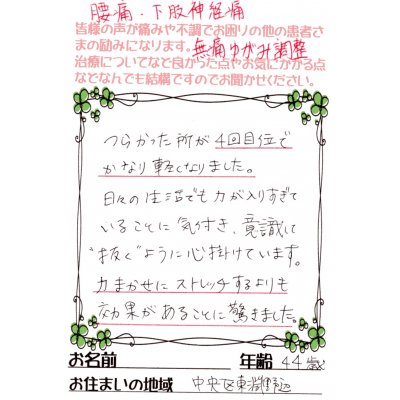 腰痛・下肢神経痛
皆様の声が痛みや不調でお困りの他の患者さ
まの励みになります。無痛ゆがみ調整
治療についてなど良かった点やお気にかかる点
などなんでも結構ですのでお聞かせください。
つらかった所が4回目位で
かなり軽くなりました。
日々の生活でも力が入りすぎて
いることに気付き、意識して
“抜く”ように心掛けています。
力まかせにストレッチするよりも
効果があることに驚きました。
お名前 年齢 44歳
お住まいの地域 中央区東